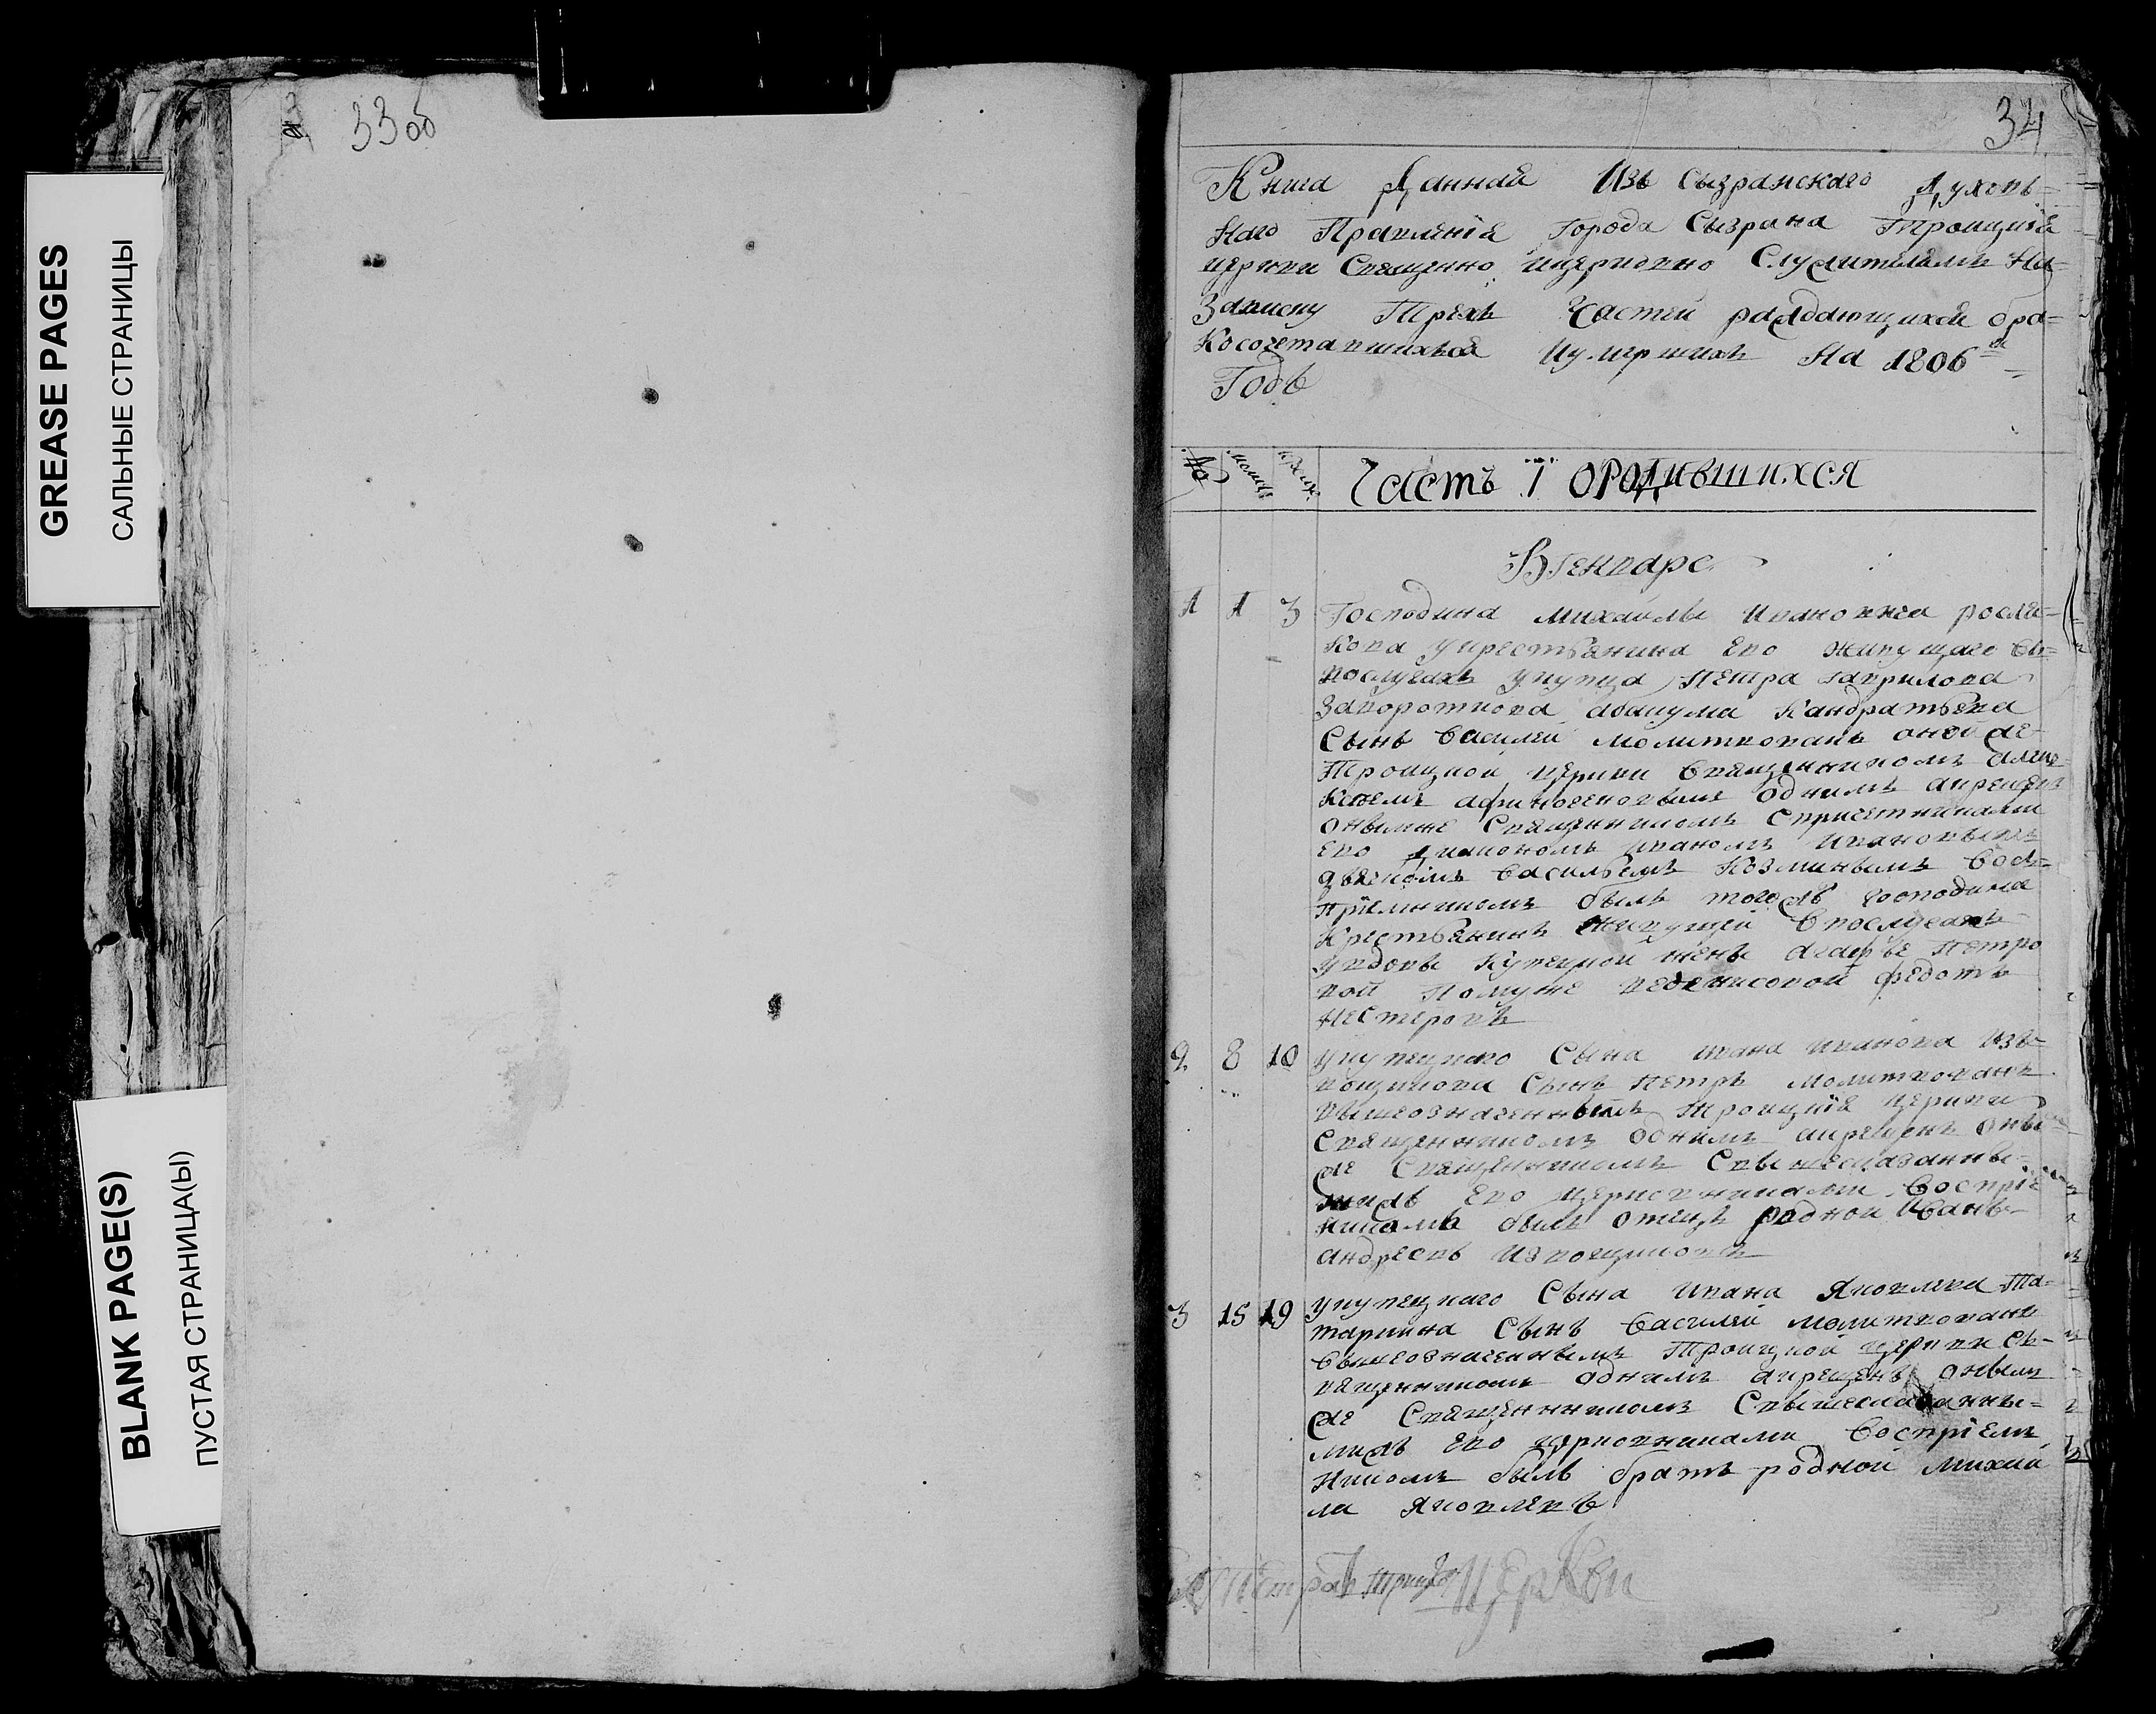 GREASE PAGES
САЛЬНЫЕ СТРАНИЦЫ
BLANK PAGE(S)
ПУСТАЯ СТРАНИЦА(Ы)
33об
34
Книга Данная Изъ Сызранскаго Духов=
наго Правленія Города Сызрана Троицкія
церкви Священно ицерковно Служителямъ На
Записку Трехъ Частей раждающихся бра=
косочетавшихся Иумершихъ На 1806й
Годъ
№ крещ. Часть I ОРОДИВШИХСЯ
Вгенваре
1 1 3 Господина Михаилы Ивановича росля=
кова укрестьянина Его живущаго въ
послугахъ укупца Петра гаврилова
Завороткова абакума Кандратьева
Сынъ Василеи молитвованъ оной же
Троицкой Церкви Священникомъ алек
сеемъ афиногеновымъ однимъ акрещенъ
онымже Священникомъ Спричетниками
Его Диакономъ иваномъ ивановымъ
дьячкомъ Васильемъ Козминымъ Вос=
пріемникомъ былъ тогожъ господина
Крестьянинъ живущей Впослугахъ
увдовы Купецкой жены агафье Петро
вой Помуже Федотъ
Нестеровъ
2 8 10 укупецкаго Сына ивана иванова Изв=
ощикова Сынъ Петръ молитвованъ
вышеозначеннымъ Троицкія церкви
Священникомъ однимъ акрещенъ оны
же Священникомъ Свышесказанны=
мижъ Его церковниками Воспріе
никомъ былъ отецъ родной Иванъ
андреевъ Извощиковъ
3 15 19 укупецкаго Сына ивана Яковлева Та=
таркина Сынъ Василей молитвованъ
вышеозначеннымъ Троицкой церкви Св=
ященникомъ однимъ акрещенъ онымъ
же Священникомъ Свышесказанны=
мижъ Его церковниками Воспріем
никомъ былъ братъ родной михаи
ла Яковлевъ
Церкви